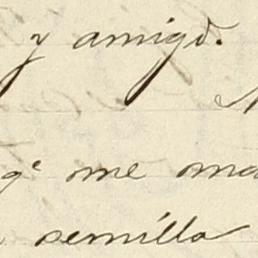 y amigo.
qe me ma
semilla